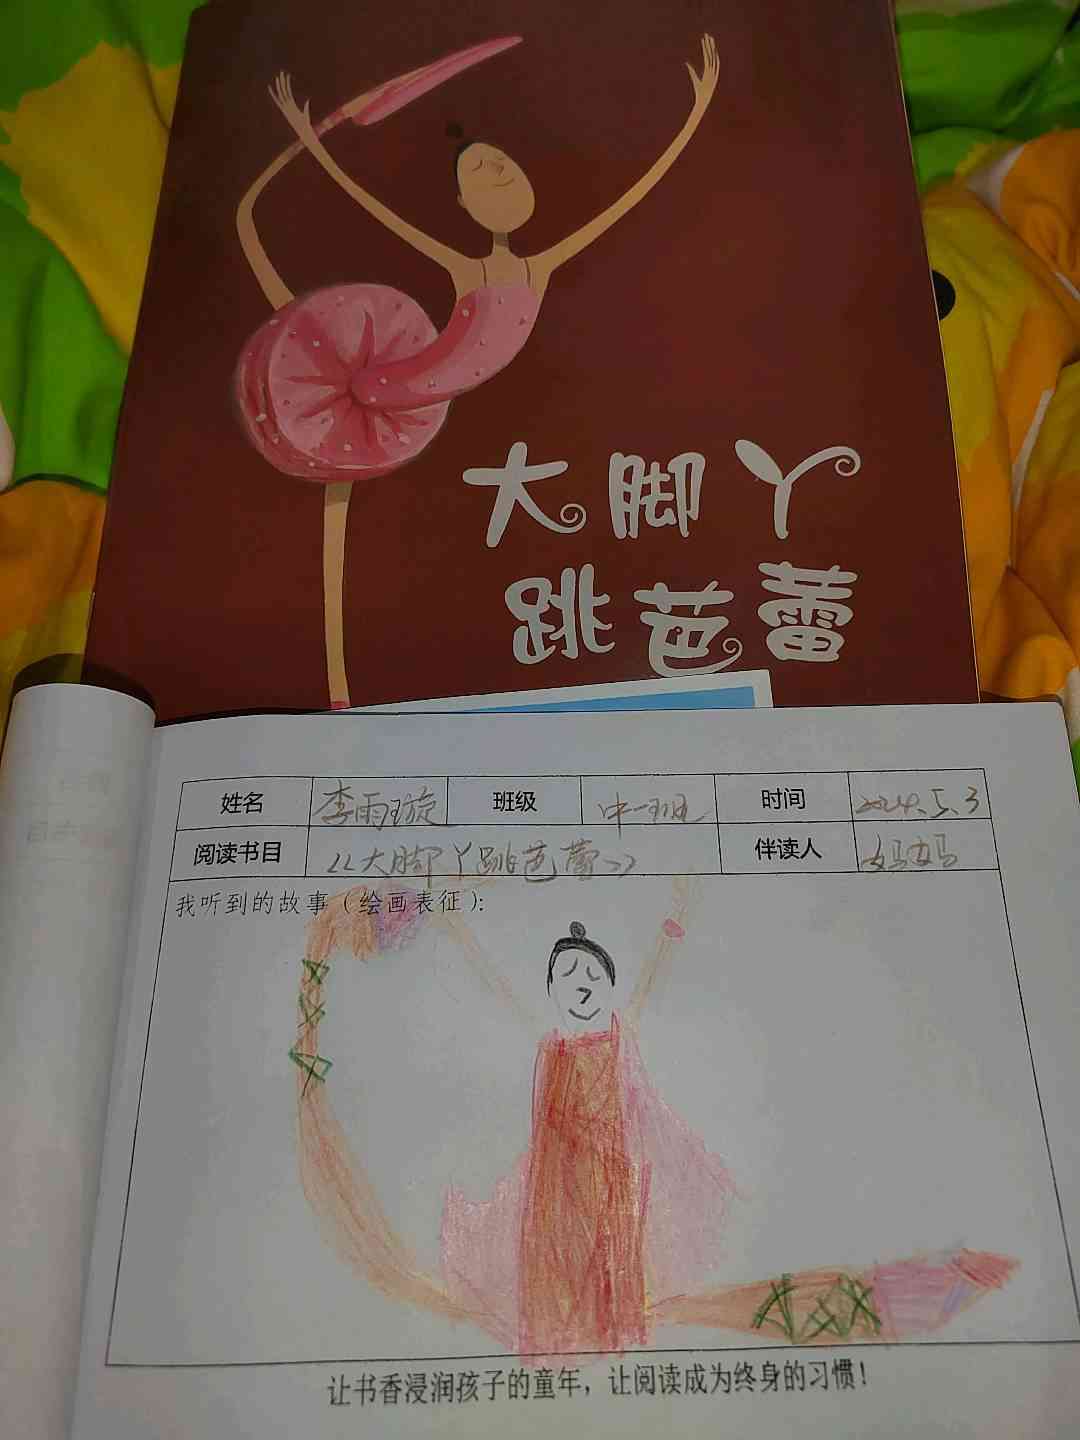 大脚丫
跳芭蕾
姓名 李雨璇 班级 中一班 时间 2024.5.3
阅读书目 《大脚丫跳芭蕾》 伴读人 妈妈
我听到的故事（绘画表征）：
让书香浸润孩子的童年，让阅读成为终身的习惯！